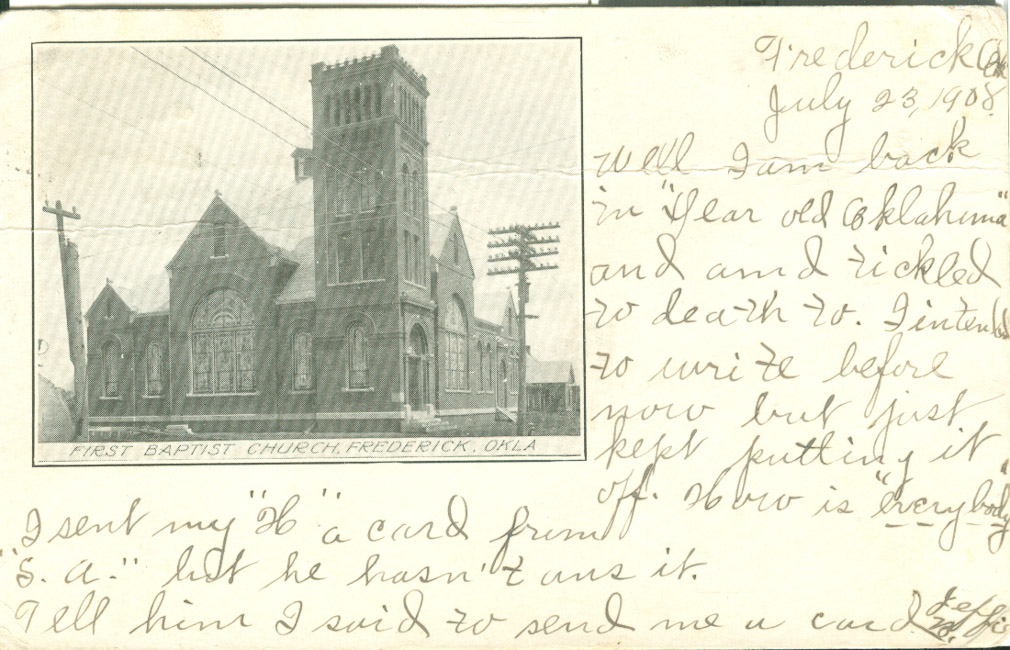 FIRST BAPTIST CHURCH, FREDERICK, OKLA
Frederick Ok
July 23, 1908.
Well I am back
in "dear old Oklahoma"
and am I tickled
to death to. I intended
to write before
now but just
kept putting it
off. How is "everybody"
I sent my "H" a card from
"S. A." but he hasn't ans it.
Tell him I said to send me a card